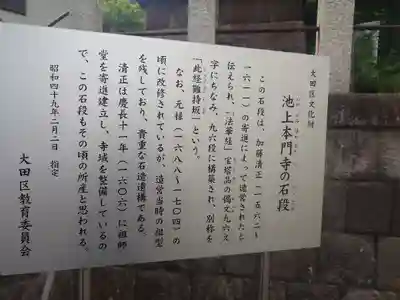 大田区文化財
池上本門寺の石段
この石段は、加藤清正（一五六二～
一六一一）の寄進によって造営されたと
伝えられ、「法華経」宝塔品の偈文九六文
字にちなみ、九六段に構築され、別称を
「此経難持坂」という。
なお、元禄（一六八八～一七〇四）の
頃に改修されているが、造営当時の祖型
を残しており、貴重な石造遺構である。
清正は慶長十一年（一六〇六）に祖師
堂を寄進建立し、寺域を整備しているの
で、この石段もその頃の所産と思われる。
昭和四十九年二月二日　指定
大田区教育委員会